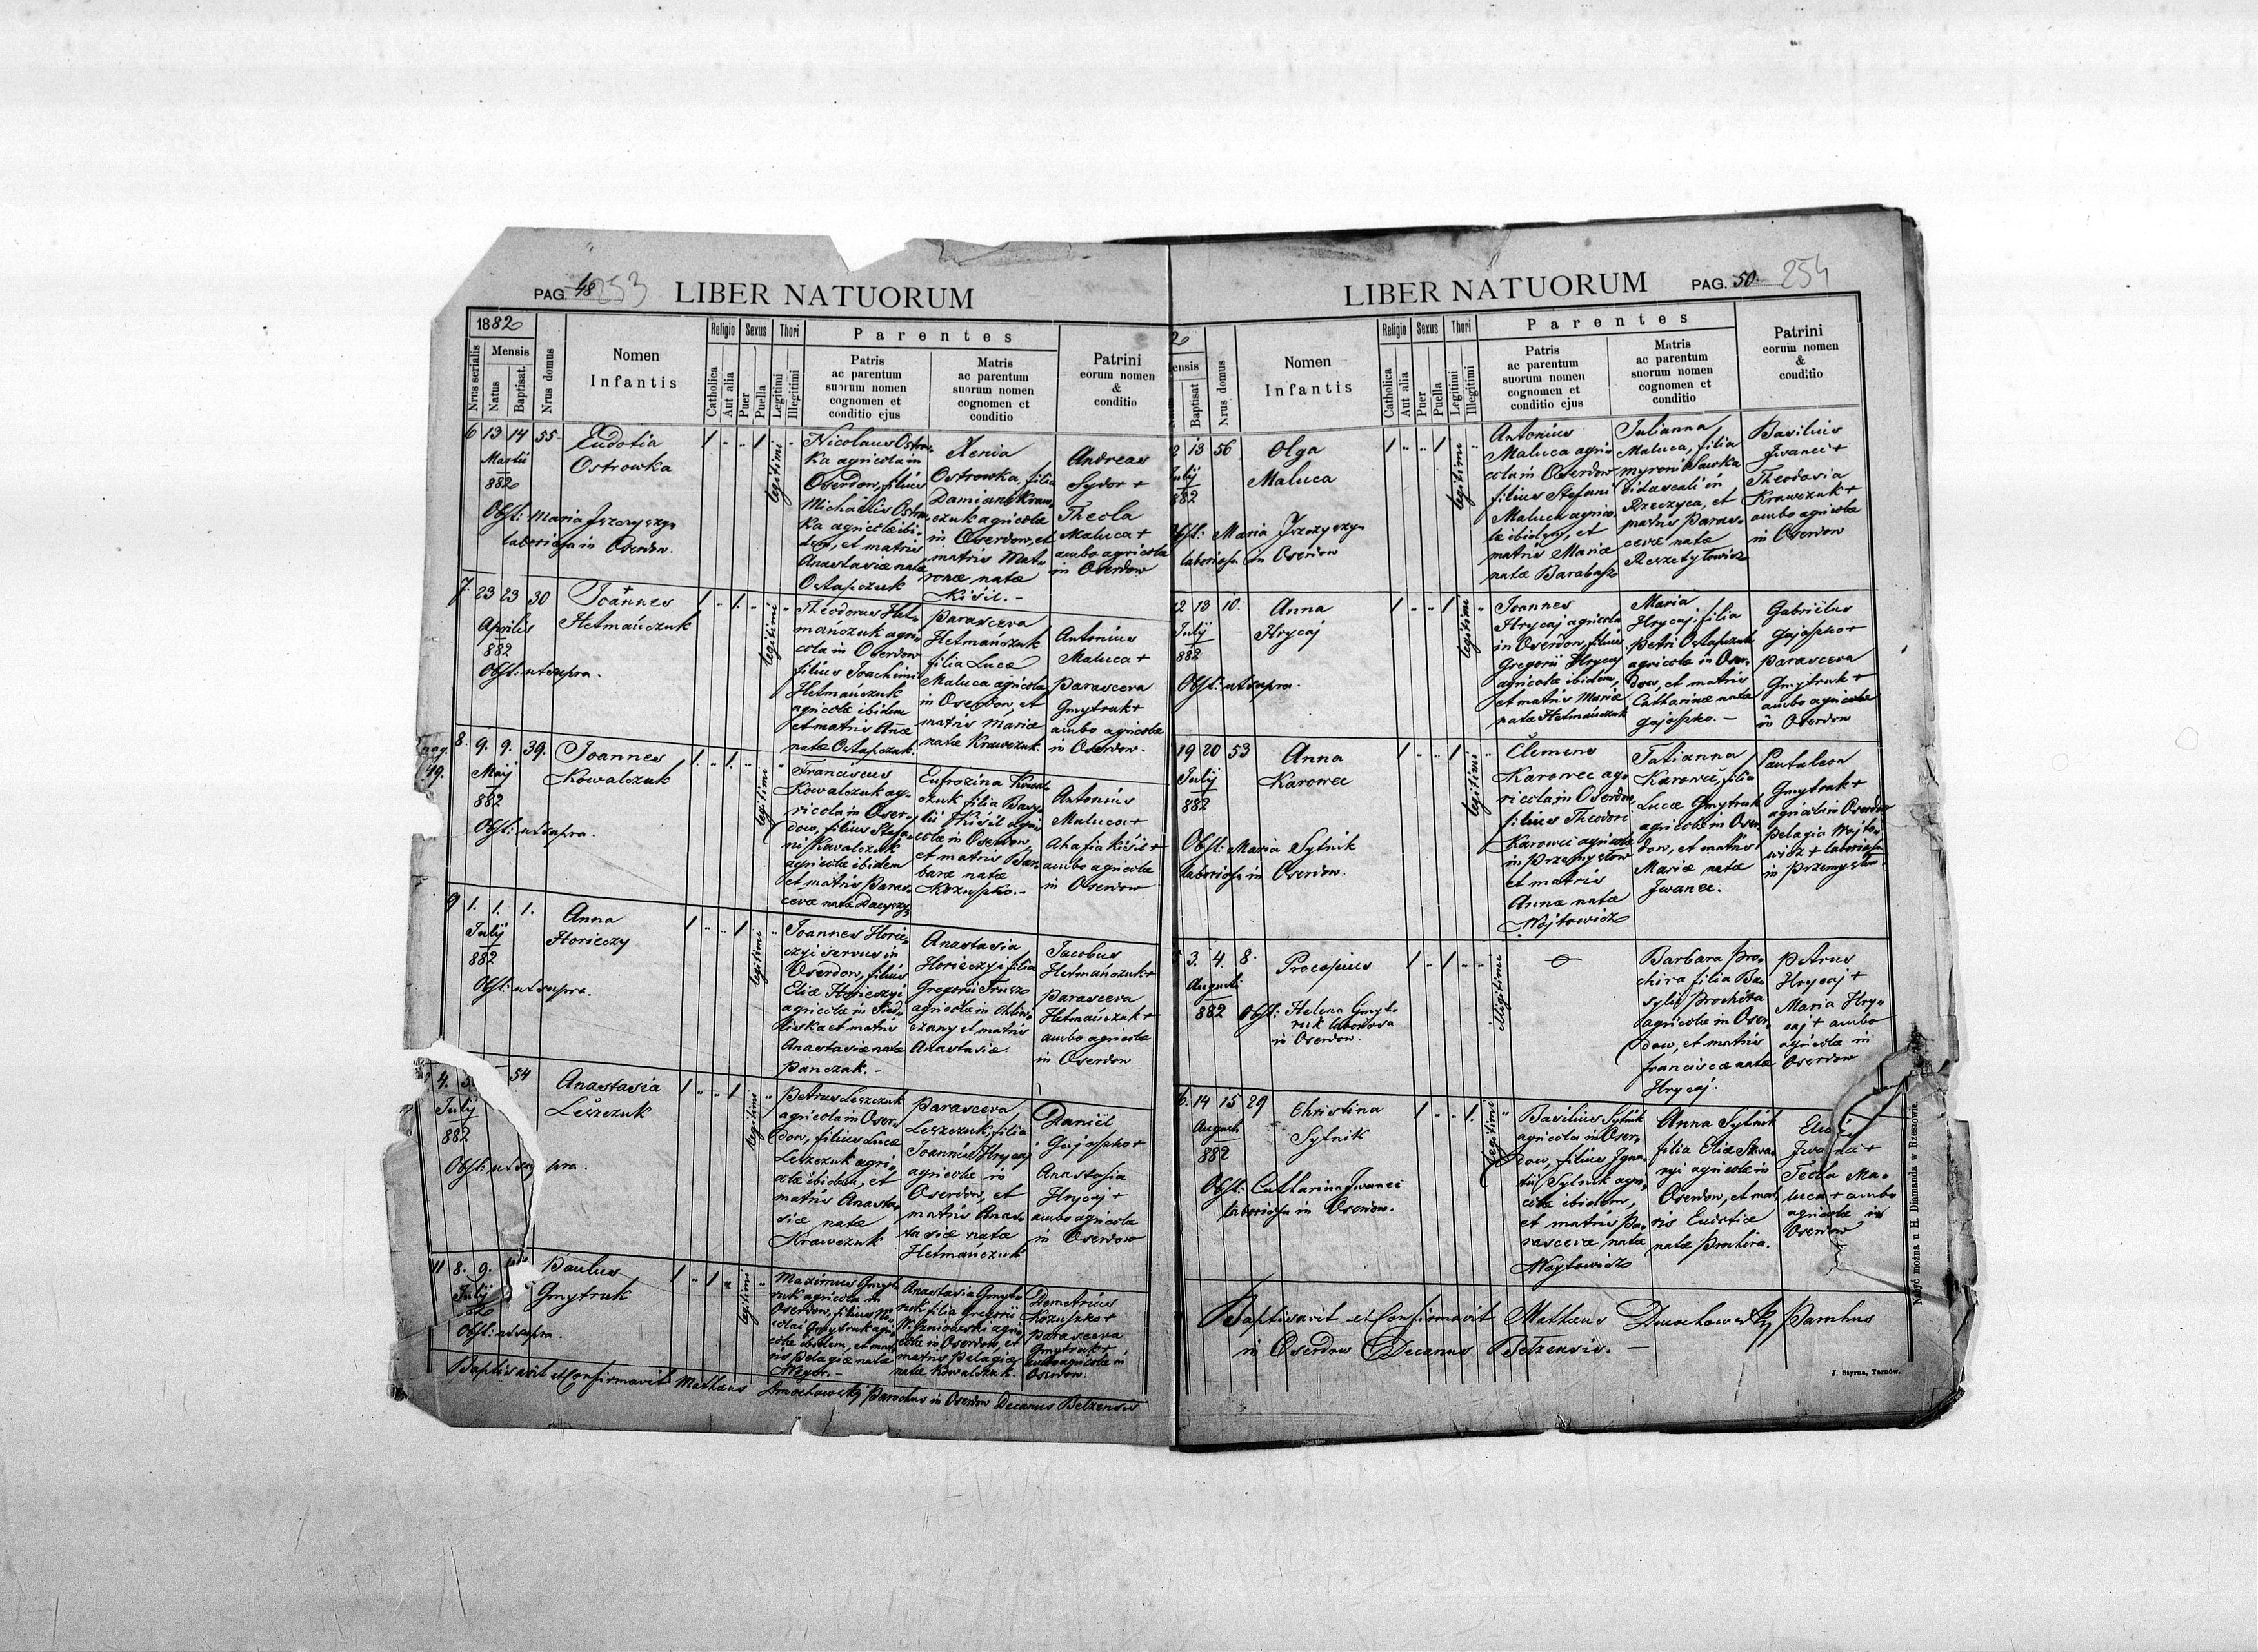 PAG. 48 253 LIBER NATUORUM
1882
Nrus serialis
Mensis
Natus
Baptisat.
Nrus domus
Nomen
Infantis
Religio
Catholica
Aut alia
Sexus
Puer
Puella
Thori
Legitimi
Illegitimi
Parentes
Patris
ac parentum
suorum nomen
cognomen et
conditio ejus
Matris
ac parentum
suorum nomen
cognomen et
conditio
Patrini
eorum nomen
&
conditio
6 13 14 55
Martii
882
Eudotia
Ostrowka
Obst: Maria
laboriosa in Oserdow.
legitimi
Nicolaus Ostrow
ka agricola in
Oserdow, filius
Michaelis Ostrow
ka agricolæ ibi
dem, et matris
Anastasiæ natæ
Ostapczuk
Xenia
Ostrowka, filia
Damiani Kraw
czuk agricolæ
in Oserdow, et
matris Mat
ronæ natæ
Kisil. -
Andreas
Sydor +
Thecla
Maluca +
ambo agricolæ
in Oserdow
7. 23 23 30
Aprilis
882
Joannes
Hetmańczuk
Obst: ut supra.
legitimi
Theodorus Het
mańczuk agri
cola in Oserdow
filius Joachimi
Hetmańczuk
agricolæ ibidem
et matris Annæ
natæ Ostapczuk.
Parasceva
Hetmańczuk
filia Lucæ
Maluca agricolæ
in Oserdow, et
matris Mariæ
natæ Krawczuk.
Antonius
Maluca +
Parasceva
Gmytruk +
ambo agricolæ
in Oserdow.
pag.
49.
8. 9. 9. 39.
Maij
882
Joannes
Kowalczuk
Obst: ut supra.
legitimi
Franciscus
Kowalczuk ag
ricola in Oser
dow, filius Stefa
ni Kowalczuk
agricolæ ibidem
et matris Paras
cevæ natæ
Eufrozina Kowal
czuk filia Basy
lii Kisil agri
colæ in Oserdow,
et matris Bar
baræ natæ
Kozuszko. -
Antonius
Maluca +
Ahafia Kisil +
ambo agricolæ
in Oserdow
9 1. 1. 1.
Julij
882
Anna
Horieczy
Obst: ut supra.
legitimi
Joannes Horie
czyi servus in
Oserdow, filius
Eliæ Horieczyi
agricolæ in Sied
liska et matris
Anastasiæ natæ
Panczak. -
Anastasia
Horieczyi filia
Gregorii
agricolæ in
et matris
Anastasiæ.
Jacobus
Hetmańczuk +
Parasceva
Hetmańczuk +
ambo agricolæ
in Oserdow
4. 5 54
Julij
882
Anastasia
Leszczuk
Obst: ut supra.
legitimi
Petrus Leszczuk
agricola in Oser
dow, filius Lucæ
Leszczuk agri
colæ ibidem, et
matris Anasta
siæ natæ
Krawczuk
Parasceva
Leszczuk, filia
Joannis Hrycaj
agricolæ in
Oserdow, et
matris Anas
tasiæ natæ
Hetmańczuk
Daniil
Gajoszko +
Anastasia
Hrycaj +
ambo agricolæ
in Oserdow
11 8. 9.
Julij
882
Paulus
Gmytruk
Obst: ut supra.
legitimi
Maximus Gmyt
ruk agricola in
Oserdow, filius Ni
colai Gmytruk agri
colæ ibidem, et mat
ris Pelagiæ natæ
Anastasia Gmyt
ruk filia Gregorii
Wiszniowski agri
colæ in Oserdow, et
matris Pelagiæ
natæ Kowalczuk.
Demetrius
Kozuszko +
Parasceva
Gmytruk +
ambo agricolæ in
Oserdow.
Baptisavit et Confirmavit Mathæus Dmochowskij Parochus in Oserdow Decanus Bełzensis
LIBER NATUORUM PAG. 50. 254
Baptisat
Nrus domus
Nomen
Infantis
Religio
Catholica
Aut alia
Sexus
Puer
Puella
Thori
Legitimi
Illegitimi
Parentes
Patris
ac parentum
suorum nomen
cognomen et
conditio ejus
Matris
ac parentum
suorum nomen
cognomen et
conditio
Patrini
eorum nomen
&
conditio
2 13 56
Julij
882
Olga
Maluca
Obst: Maria
laboriosa in Oserdow
legitimi
Antonius
Maluca agri
cola in Oserdow
filius Stefani
Maluca agrico
læ ibidem, et
matris Mariæ
natæ Barabasz
Julianna
Maluca, filia
Myroni Sawka
didascali in
Rzeczyca, et
matris Paras
cevæ natæ
Reszetyłowicz
Basilius
Iwanec +
Theodosia
Krawczuk +
ambo agricolæ
in Oserdow
12 13 10.
Julij
882
Anna
Hrycaj
Obst: ut supra.
legitimi
Joannes
Hrycaj agricola
in Oserdow, filius
Gregorii Hrycaj
agricolæ ibidem,
et matris Mariæ
natæ Hetmańczuk
Maria
Hrycaj filia
Petri Ostapczuk
agricolæ in Oser
dow, et matris
Catharinæ natæ
Gajoszko. -
Gabriëlus
Gajoszko +
Parasceva
Gmytruk +
ambo agricolæ
in Oserdow
19 20 53
Julij
882
Anna
Karowec
Obst: Maria Sytnik
laboriosa in Oserdow.
legitimi
Clemens
Karowec ag
ricola in Oserdow,
filius Theodori
Karowec agricolæ
in Przemysłow
et matris
Annæ natæ
Wojtowicz
Tatianna
Karowec, filia
Lucæ Gmytruk
agricolæ in Oser
dow, et matris
Mariæ natæ
Iwanec.
Pantaleon
Gmytruk +
agricola in Oserdow
Pelagia Wojto
wicz + laboriosa
in Przemysłow.
3. 4. 8.
Augusti
882
Procopius
Obst: Helena Gmyt
ruk laboriosa
in Oserdow.
illegitimi
Barbara Pro
chira filia Ba
sylii Prochira
agricolæ in Oser
dow, et matris
Franciscæ natæ
Hrycaj.
Petrus
Hrycaj +
Maria Hry
caj + ambo
agricolæ in
Oserdow
6. 14 15 29
Augusti
882
Christina
Sytnik
Obst: Catharina Iwanec
laboriosa in Oserdow.
legitimi
Basilius Sytnik
agricola in Oser
dow, filius Igna
tii Sytnik agri
colæ ibidem,
et matris Pa
rascevæ natæ
Wojtowicz
Anna Sytnik
filia Eliæ
agricolæ in
Oserdow, et mat
ris Eudotiæ
natæ Prochira.
Tecla Ma
luca + ambo
agricolæ in
Oserdow
Baptisavit et Confirmavit Mathæus Dmochowskij Parochus
in Oserdow Decanus Bełzensis. -
J. Styrna, Tarnów.
Nabyć można u H. Diamanda w Rzeszowie.